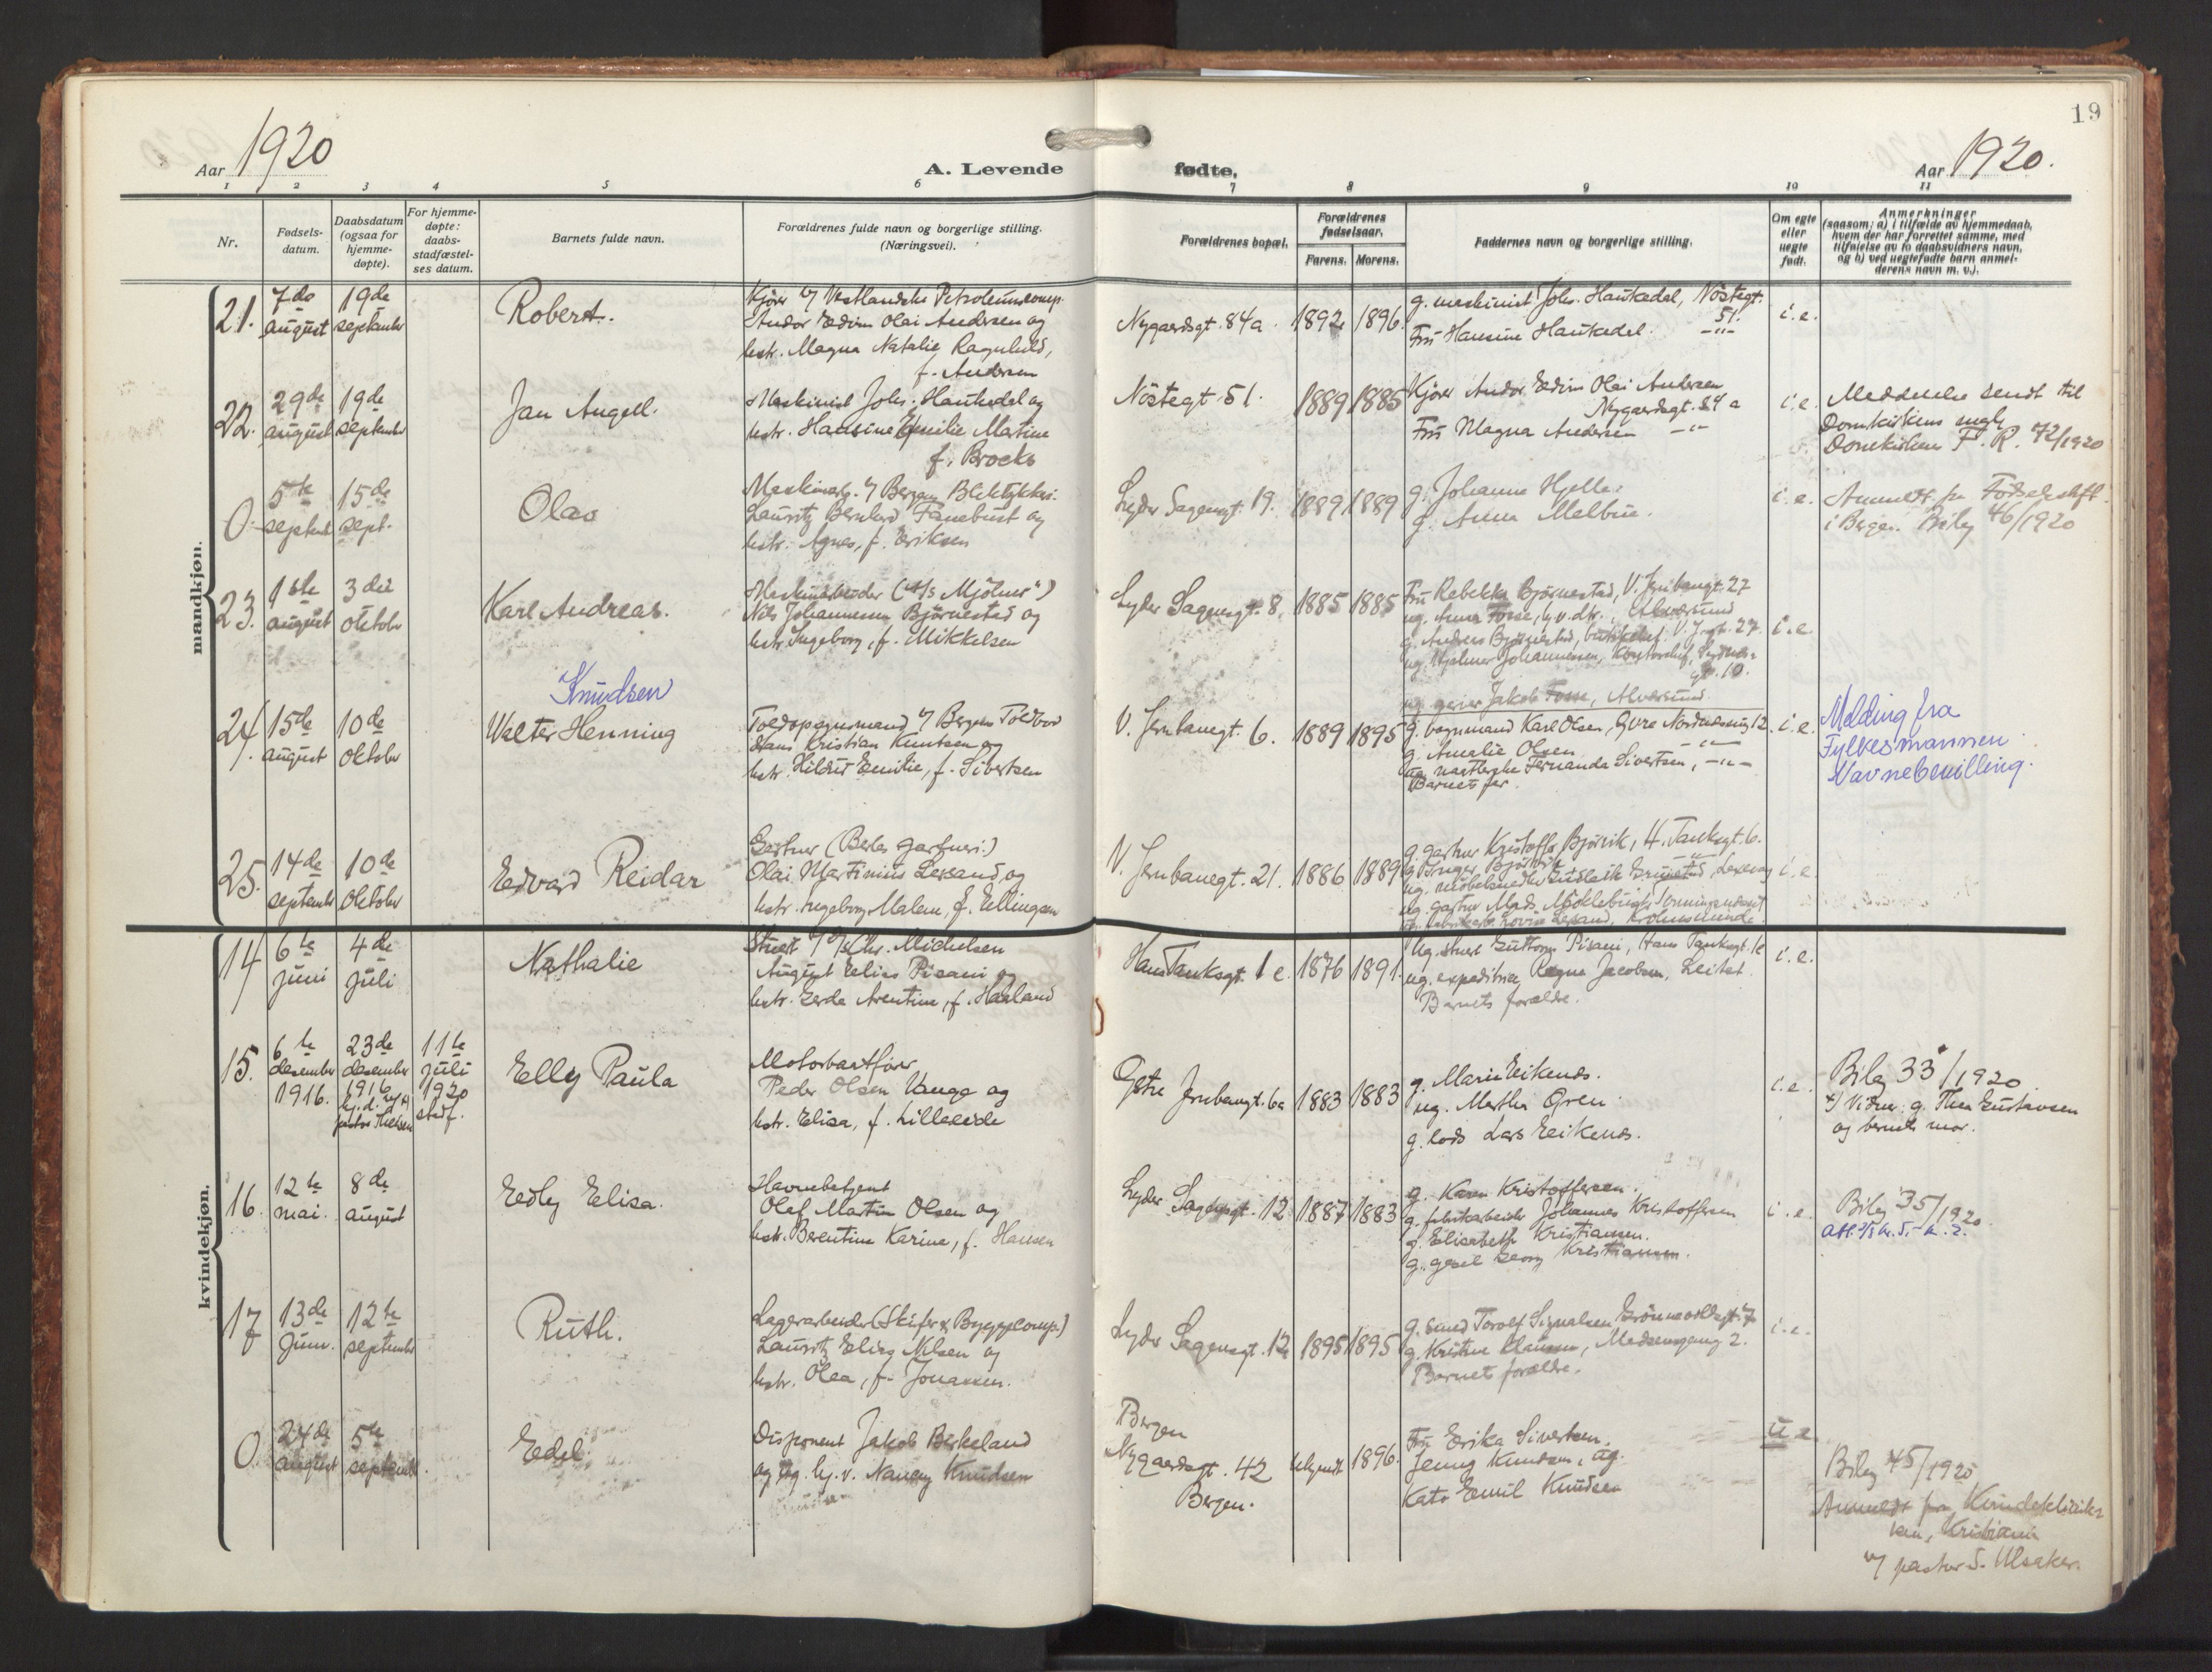 19
Aar 1920
A. Levende fødte,
Aar 1920.
1 2 3 4 5 6 7 8 9 10 11
Nr.
Fødsels-
datum.
Daabsdatum
(ogsaa for
hjemme-
døpte).
For hjemme-
døpte:
daabs-
stadfæstel-
ses datum.
Barnets fulde navn.
Forældrenes fulde navn og borgerlige stilling.
(Næringsvei).
Forældrenes bopæl.
Forældrenes
fødselsaar.
Farens. Morens.
Faddernes navn og borgerlige stilling.
Om egte
eller
uegte
født.
Anmerkninger
(saasom: a) i tilfælde av hjemmedaab,
hvem der har forrettet samme, med
tilføielse av to daabsvidners navn,
og b) ved uegtefødte barn anmel-
derens navn m. v.).
mandkjøn.
21.
7de
august
19de
september
Robert.
Kjører v/ Vestlandske Petroleumscomp.
Andor Edvin Olai Andersen og
hstr. Magna Natalie Ragnhild,
f. Andersen
Nygaardsgt. 84a.
1892
1896.
g. maskinist Johs. Haukedal, Nöstegt.
51.
Fru Hansine Haukedal. -"-
i. e.
22.
29de
august
19de
september
Jan Angell.
Maskinist Johs. Haukedal og
hstr. Hansine Emilie Martine
f. Brocks
Nöstegt. 51.
1889
1885
Kjører Andor Edvin Olai Andersen
Nygaardsgt. 84 a
Fru Magna Andersen -"-
i. e.
Meddelelse sendt til
Domkirkens sogn
Domkirken F. R. 72/1920
0.
5te
septemb
15de
sept.
Olav
Maskinarb. v/ Bergens Bliktrykkeri
Lauritz Bernhard Fanebust og
hstr. Agnes, f. Eriksen
Lyder Sagensgt. 19.
1889
1889
g. Johanne Hjelle.
g. Anna Melbue.
i. e.
Anmeldt fra Fødselsstift.
i Bergen. Bilag 46/1920
23.
1ste
august
3die
oktober
Karl Andreas.
Maskinarbeider (A/S "Mjölner")
Nils Johannesen Björnestad og
hstr. Ingeborg, f. Mikkelsen
Lyder Sagensgt. 8.
1885
1885
Fru Rebekka Bjørnestad, V. Jernbanegt. 27
ug. Anna Fosse, gv. dtr., Alversund
g. Anders Bjørnestad, V. J. gt. 27.
ug. Hjalmar Johannessen, Kontorchef,
gt. 10.
ug. Jakob Fosse, Alversund.
i. e.
24.
15de
august
10de
oktober
Knudsen
Walter Henning
Toldopsynsmand v/ Bergens Toldbod
Hans Kristian Knutsen og
hstr. Hildur Emilie, f. Sivertsen
V. Jernbanegt. 6.
1889
1895
g. vognmand Karl Olsen, Øvre Nordnæsvei 12.
g. Amalie Olsen -"-
ug. Fernanda Sivertsen, -"-
Barnets far.
i. e.
Melding fra
Fylkesmannen
Navnebevilling.
25.
14de
september
10de
oktober
Edvard Reidar
Gartner (Berles gartneri.)
Olai Martinius Lexand og
hstr. Ingeborg Malene, f. Ellingsen
V. Jernbanegt. 21.
1886
1889
g. gartner Kristoffer Bjørvik, H. Tanksgt. 6.
g. Inger Bjørvik -"-
ug. møbelsnedker
ug. gartner Mads Møklebust,
i. e.
kvindekjøn.
14
6te
juni
4de
juli
Nathalie
Stuert v/ A/S Chr. Michelsen
August Elias Pisani og
hstr. Gerda Arentine, f. Haaland
Hans Tanksgt. 1 c.
1876
1891.
ug. stuert Guttorm Pisani, Hans Tanksgt. 1c
ug. expeditrice Ragna Jacobsen, Leitet.
Barnets forældre.
i. e.
15.
6te
desember
1916.
23de
desember
1916
hj. d. v/ x)
pastor Nielsen
11te
juli
1920
stadf.
Elly Paula
Motorbaatfører
Peder Olsen Vange og
hstr. Elisa, f. Lilleeide
Østre Jernbanegt. 6a
1883
1883
g. Marie Eikenes.
ug. Martha Gren.
g. lods Lars Eeikenes.
i. e.
Bilag 33/1920
x) Vidner: g. Thea Gustavsen
og barnets mor.
16.
12te
mai.
8de
august
Edly Elisa.
Havnebetjent
Olaf Martin Olsen og
hstr. Berentine Karine, f. Hansen
Lyder Sagensgt. 12
1887
1883
g. Karen Kristoffersen.
g. fabrikarbeider Johannes Kristoffersen
g. Elisabeth Kristiansen.
g. Georg Kristiansen.
i. e.
Bilag 35/1920.
17
13de
juni.
12te
september
Ruth.
Lagerarbeider (Skifer & Byggecomp.)
Lauritz Elias Nilsen og
hstr. Olea, f. Jonassen.
Lyder Sagensgt. 12
1895
1895
g. smed Torolf Sigvaldsen, 7
g. Kristine Klausen, Madamsgang 2.
Barnets forældre.
i. e.
0.
24de
august
5te
september.
Edel
Disponent Jakob Birkeland
og ug. hj. v. Nancy Knudsen
Bergen
Nygaardsgt. 42
Bergen.
ukjendt
1896.
Fru Erika Sivertsen.
Jenny Knudsen, ug.
Kato Emil Knudsen
u. e.
Bilag 45/1920
Anmeldt fra Kvindeklinik-
ken, Kristiania
v/ pastor S. Ulsaker.